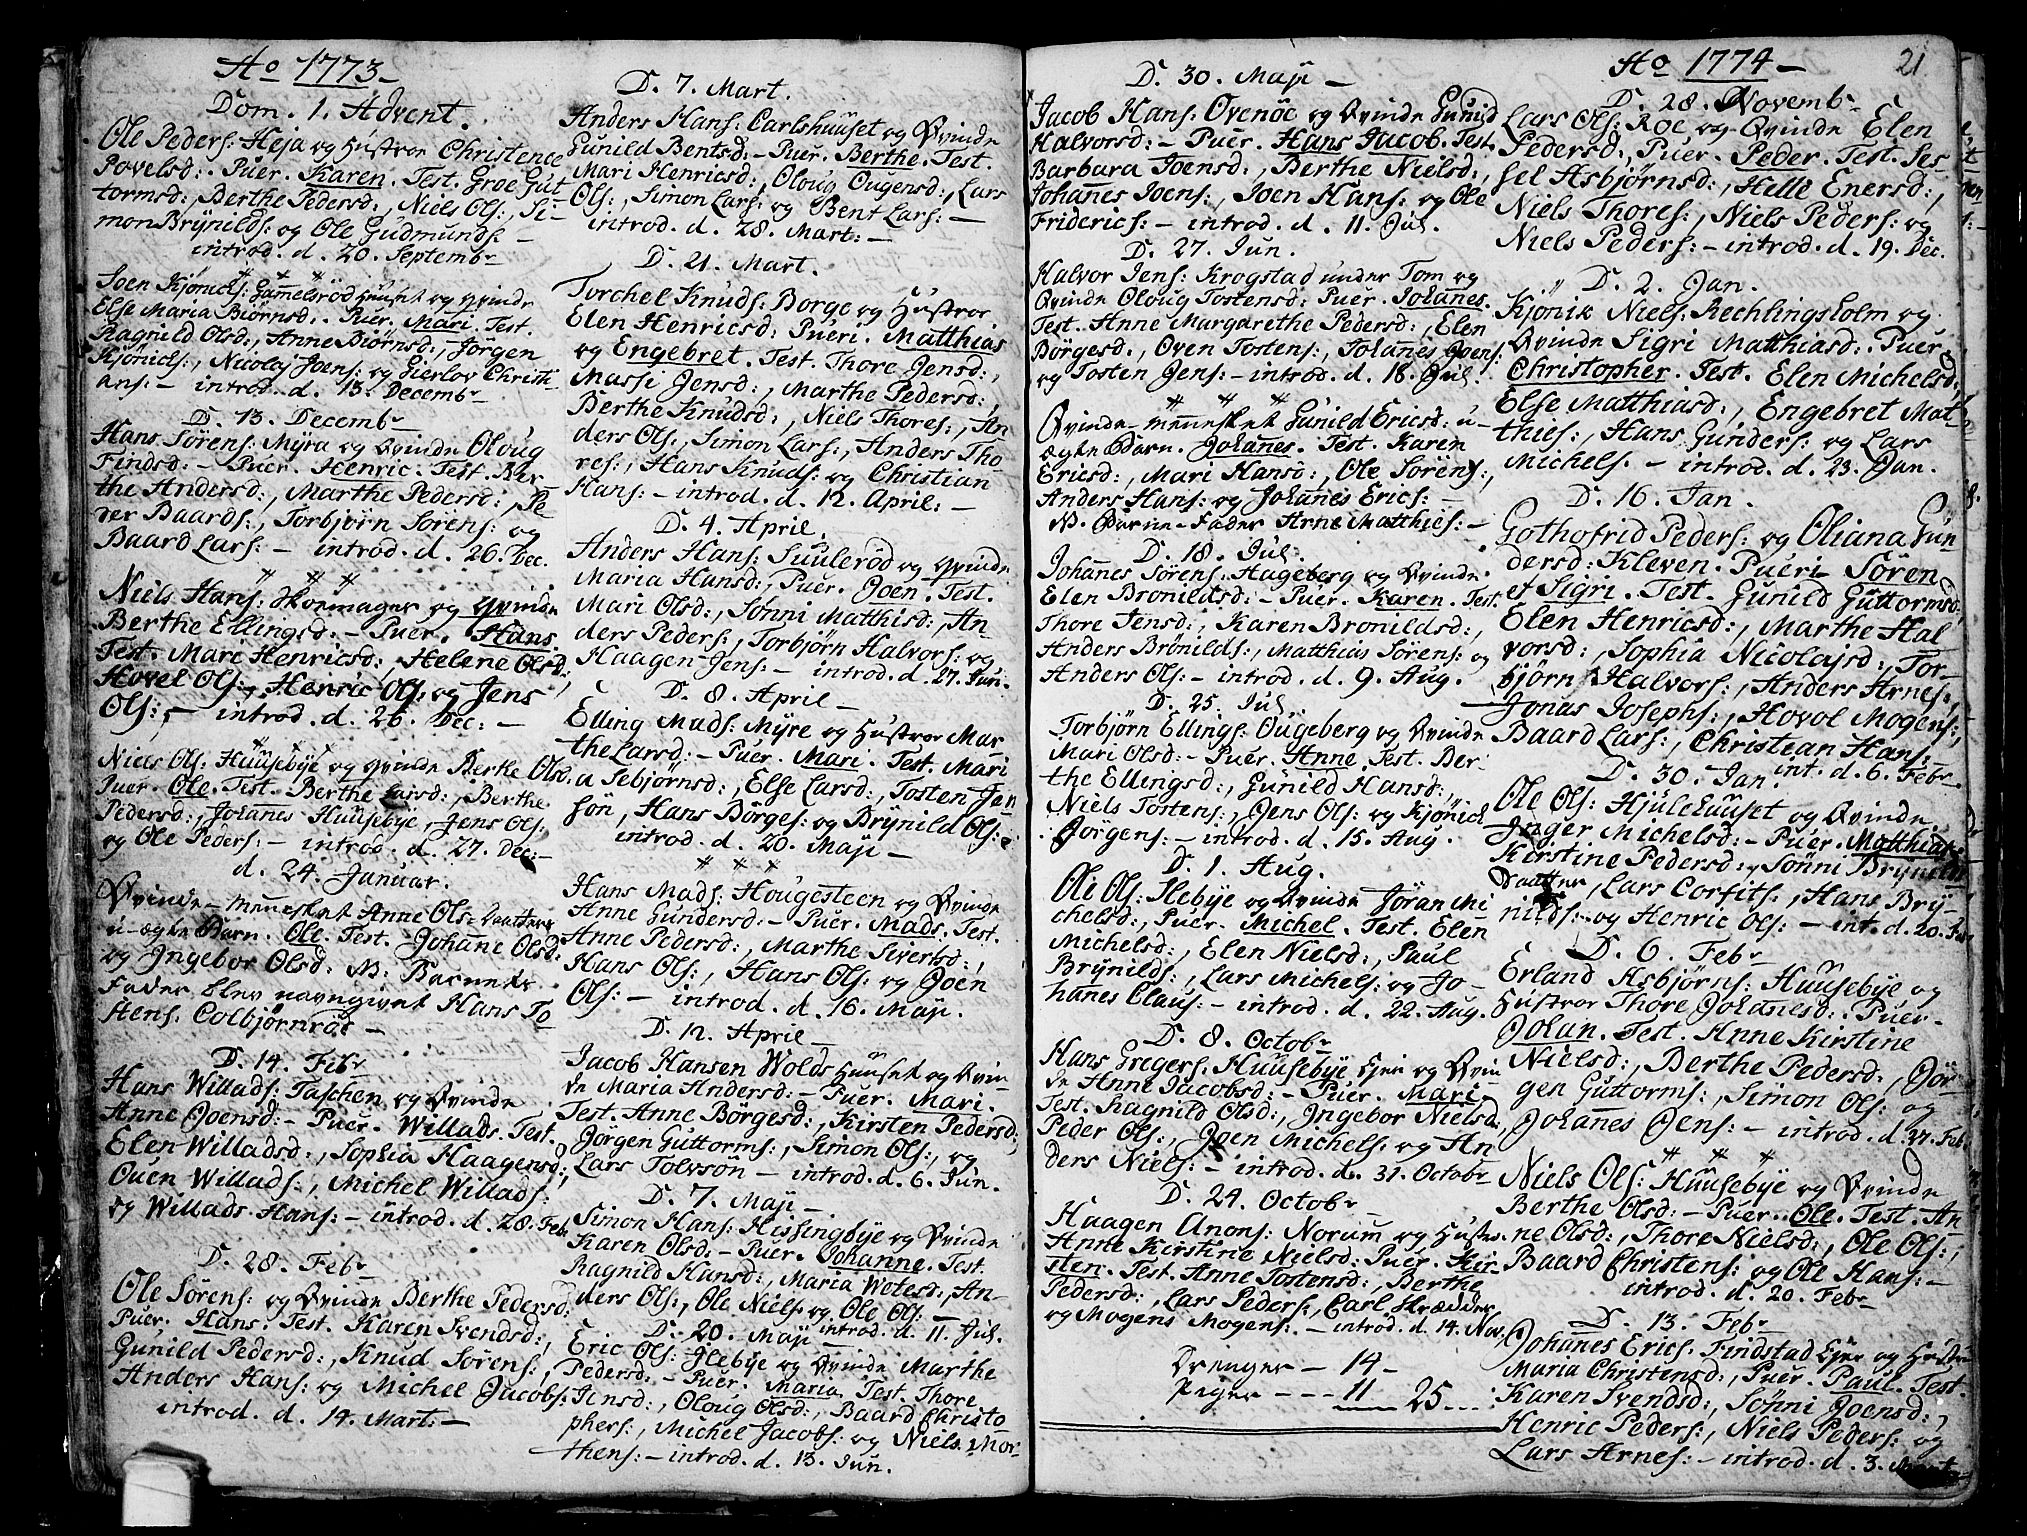 Ao 1773
Dom. 1. Advent.
Ole Peders: Heja og Hustroe Christence
Povelsd: Puer. Karen. Test. Groe Gut
tormsd:, Berthe Pedersd:, Niels Ols:, Si-
mon Brÿnilds: og Ole Gudmunds: –
introd. d. 20. Septembr
Joen Kjönichs: Gammelsröd Huuset og Qvinde
Else Maria Biörnsd:. Puer. Mari. Test.
Ragnild Olsd:, Anne Biörnsd:, Jörgen
Kjönichs:, Nicolaj Joens: og Gierlov Christi-
ans: – introd. d. 13. Decembr
D. 13. Decembr
Hans Sörens: Mÿra og Qvinde Oloug
Findsd: – Puer. Henric. Test. Ber-
the Andersd:, Marthe Pedersd:, Pe-
der Baards:, Torbjörn Sörens: og
Baard Lars: – introd. d. 26. Dec.
Niels Hans: Skoemager og Qvinde
Berthe Ellingsd: – Puer. Hans.
Test. Mari Henricsd:, Helene Olsd:,
Hovel Ols:, Henric Ols: og Jens
Ols: – introd. d. 26. Dec: –
Niels Ols: Huusebÿe og Qvinde Berthe Olsd.
Puer. Ole. Test. Berthe Larsd:, Berthe
Pedersd:, Johanes Huusebÿe, Jens Ols:
og Ole Peders: – introd. d. 27. Dec: –
d. 24. Januar.
Qvinde-mennesket Anne Ols: Daatters
u-ægte Barn. Ole. Test. Johanne Olsd:
og Ingebor Olsd: NB: Barnets
Fader blev navngivet Hans To
stens: Colbjörnröd –
D. 14. Febr
Hans Willads: Taschen og Qvinde
Anne Joensd: – Puer. Willads. Test.
Elen Willadsd:, Sophia Haagensd:,
Ouen Willads:, Michel Willads:
og Willads Hans: – introd. d. 28. Feb.
D. 28. Febr
Ole Sörens: og Qvinde Berthe Pedersd:
Puer. Hans. Test. Karen Svendsd:,
Gunild Pedersd:, Knud Sörens:,
Anders Hans: og Michel Jacobs:
introd. d. 14. Mart: –
D. 7. Mart.
Anders Hans: Carlshuuset og Qvinde
Gunild Bentsd: – Puer. Berthe. Test.
Mari Henricsd:, Oloug Ougensd:, Lars
Ols:, Simon Lars: og Bent Lars: –
introd. d. 28. Mart: –
D. 21. Mart.
Torchel Knuds: Borge og Hustroe
Elen Henricsd: Pueri. Matthias
og Engebret. Test. Thore Jensd:,
Massi Jensd:, Marthe Pedersd:,
Berthe Knudsd:, Niels Thores:, An-
ders Ols:, Simon Lars:, Anders Tho
res:, Hans Knuds: og Christian
Hans: – introd. d. 12. April: –
D. 4. April.
Anders Hans: Suuleröd og Qvinde
Maria Hansd:, Puer. Joen. Test.
Mari Olsd:, Sönni Matthisd:, An-
ders Peders:, Torbjörn Halvors: og
Haagen Jens: – introd. d. 27. Jun.
D. 8. April –
Elling Mads: Mÿre og Hustroe Mar
the Larsd: – Puer. Mari. Test. Mari
a Sebjörnsd:, Else Larsd:, Tosten Jen
sön, Hans Börges: og Brÿnild Ols:
introd. d. 20. Maji –
Hans Mads: Hougesteen og Qvinde
Anne Gundersd: – Puer. Mads. Test.
Anne Pedersd:, Marthe Siversd:,
Hans Ols:, Hans Ols: og Joen
Ols: – introd. d. 16. Maji.
D. 12. April –
Jacob Hansen Wolds Huuset og Qvin-
de Maria Andersd: – Puer. Mari.
Test. Anne Börgesd:, Kirsten Pedersd:,
Jörgen Guttorms:, Simon Ols:, og
Lars Tolvsön – introd. d. 6. Jun.
D. 7. Maji –
Simon Hans: Hissingbÿe og Qvinde
Karen Olsd: – Puer. Johanne. Test.
Ragnild Hansd:, Maria Wetesd:, An-
ders Ols:, Ole Niels: og Ole Ols: –
introd. d. 11. Jul.
D. 20. Maji –
Eric Ols: Ilebÿe og Qvinde Marthe
Pedersd: – Puer. Maria. Test. Thore
Jensd:, Oloug Olsd:, Baard Christo
phers:, Michel Jacobs: og Niels Mor-
thens: – introd. d. 13. Jun.
D. 30. Maji –
Jacob Hans: Ovenöe og Qvinde Gunild
Halvorsd: – Puer. Hans Jacob. Test.
Barbara Joensd:, Berthe Nielsd:,
Johannes Joens:, Joen Hans: og Ole
Friderics: – introd. d. 11. Jul.
D. 27. Jun.
Halvor Jens: Krogstad under Tom og
Qvinde Oloug Tostensd: Puer. Johannes.
Test. Anne Margarethe Pedersd:, Elen
Börgesd:, Oven Tostens:, Johannes Joens:
og Tosten Jens: – introd. d. 18. Jul.
Qvinde-mennesket Gunild Ericsd: u-
ægte Barn. Johannes. Test. Karen
Ericsd:, Mari Hansd:, Ole Sörens:,
Anders Hans: og Johannes Erics: –
NB. Barne-Fader Arne Matthies: –
D. 18. Jul.
Johanes Sörens: Hageberg og Qvinde
Elen Bronildsd: – Puer. Karen. Test.
Thore Jensd:, Karen Bronildsd:,
Anders Brönilds:, Matthias Sörens: og
Anders Ols: – introd. d. 9. Aug.
D. 25. Jul.
Torbjörn Ellings: Ougeberg og Qvinde
Mari Olsd: – Puer. Anne. Test. Ber-
the Ellingsd:, Gunild Hansd:,
Niels Tostens:, Jens Ols: og Kjönich
Jörgens: – introd. d. 15. Aug.
D. 1. Aug.
Ole Ols: Ilebÿe og Qvinde Jöran Mi
chelsd:, Puer. Michel. Test. Elen
Michelsd:, Elen Nielsd:, Paul
Brÿnilds:, Lars Michels: og Jo-
hanes Claus: – introd. d. 22. Aug.
D. 8. Octobr
Hans Gregers: Huusebÿe Ejer og Qvin
de Anne Jacobsd: – Puer. Mari.
Test. Ragnild Olsd:, Ingebor Nielsd.,
Peder Ols:, Joen Michels: og An
ders Niels: – introd. d. 31. Octobr
D. 24. Octobr
Haagen Anons: Norum og Hustroe
Anne Kirstine Nielsd: Puer. Kir
sten. Test. Anne Tostensd:, Berthe
Pedersd:, Lars Peders:, Carl Skrædder
og Mogens Mogens: – introd. d. 14. Nov.
Drenger – 14 –
Piger – – – 11 25
Ao 1774 –
21
D. 28. Novembr
Lars Ols: Roe og Qvinde Elen
Pedersd:, Puer. Peder. Test. Ses-
sel Asbjörnsd:, Helle Enersd:,
Niels Thores:, Niels Peders: og
Niels Peders: – introd. d. 19. Dec.
D. 2. Jan.
Kjönik Niels: Rechlingsholm og
Qvinde Sigri Matthiasd: Puer
Christopher. Test. Elen Michelsd:,
Else Matthiasd:, Engebret Mat-
thies:, Hans Gunders: og Lars
Michels. – introd. d. 23. Jan.
D. 16. Jan.
Gothofrid Peders: og Oliana Gun
dersd: Kleven. Pueri Sören
et Sigri. Test. Gunild Guttormsd:,
Elen Henricsd:, Marthe Hal
vorsd:, Sophia Nicolajsd:, Tor-
björn Halvors:, Anders Arnes:,
Jonas Josephs:, Hovol Mogens:,
Baard Lars:, Christean Hans:
int. d. 6. Febr
D. 30. Jan.
Ole Ols: Hjulehuuset og Qvinde
Inger Michelsd: – Puer. Matthias.
Kirstine Pedersd:, Sönni Brÿnilds
Daatter, Lars Corfits:, Hans Brÿ-
nilds: og Henric Ols: – int. d. 20. Feb.
D. 6. Febr
Erland Asbjörns: Huusebÿe og
Hustroe Thore Johanesd: Puer.
Johan. Test. Anne Kirstine
Nielsd:, Berthe Pedersd:, Jör-
gen Guttorms:, Simon Ols: og
Johannes Jens: – introd. d. 27. Feb.
Niels Ols: Huusebÿe og Qvinde
Berthe Olsd: – Puer. Ole. Test. An
ne Olsd:, Thore Nielsd:, Ole Ols:,
Baard Christens: og Ole Hans: –
introd. d. 20. Febr
D. 13. Febr
Johanes Erics: Findstad Ejer og Hustroe
Maria Christensd:, Puer. Paul. Test.
Karen Svendsd:, Sönni Joensd:,
Henric Peders:, Niels Peders: og
Lars Arnes: – introd. d. 3.